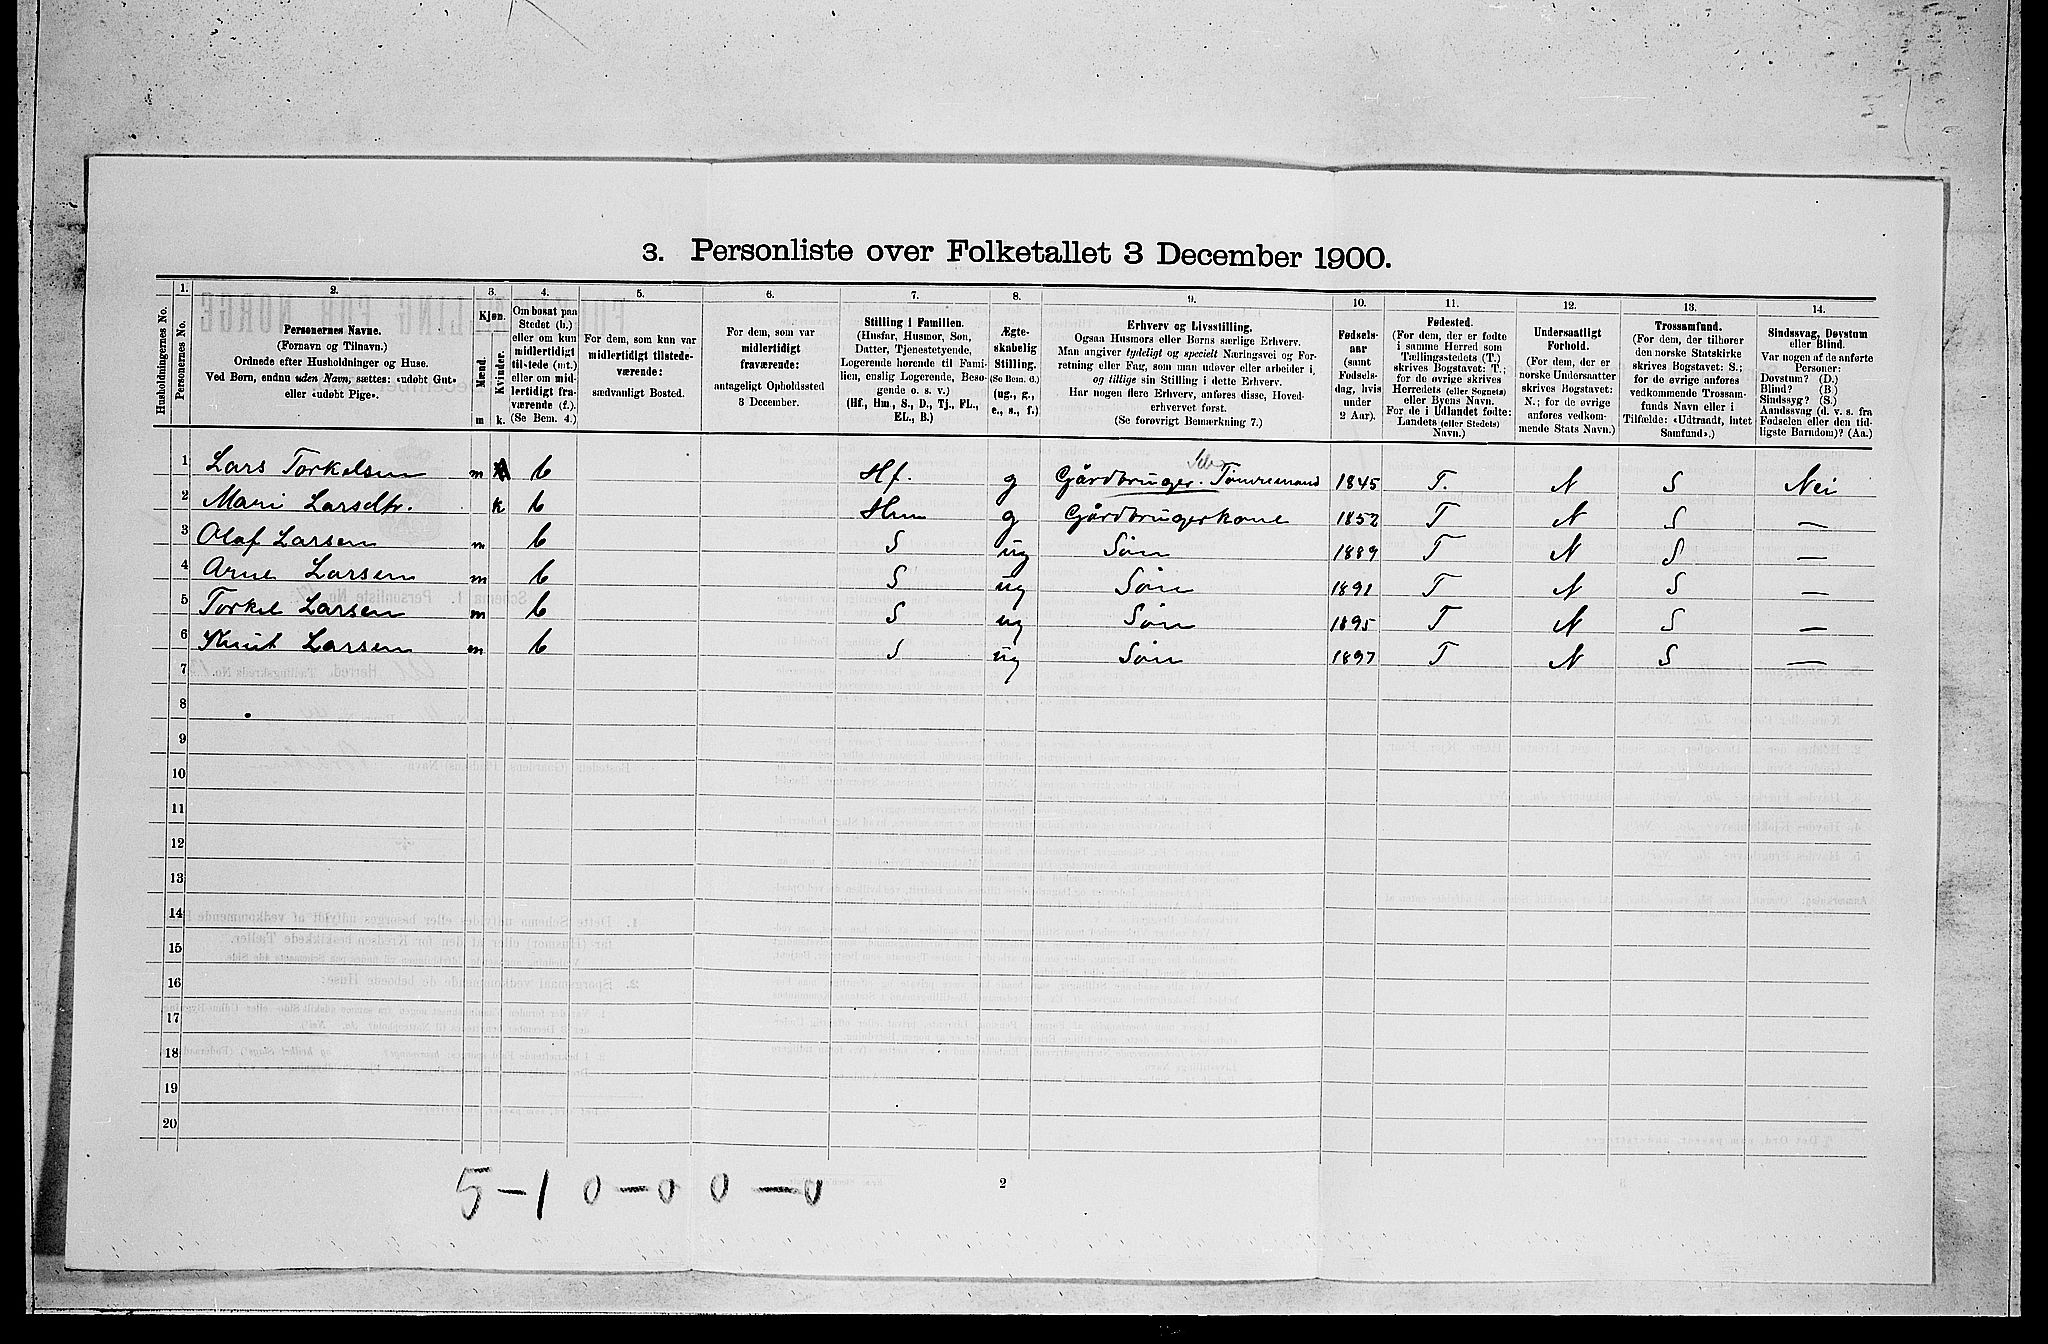 3. Personliste over Folketallet 3 December 1900.
Husholdningernes No.
1.
Personernes No.
2.
Personernes Navne.
(Fornavn og Tilnavn.)
Ordnede efter Husholdninger og Huse.
Ved Børn, endnu uden Navn, sættes: «udøbt Gut»
eller «udøbt Pige».
3.
Kjøn.
Mænd.
m
Kvinder.
k.
4.
Om bosat paa
Stedet (b.)
eller om kun
midlertidigt
tilstede (mt.)
eller om mid-
lertidigt fra-
værende (f.).
(Se Bem. 4.)
5.
For dem, som kun var
midlertidigt tilstede-
værende:
sædvanligt Bosted.
6.
For dem, som var
midlertidigt
fraværende:
antageligt Opholdssted
3 December.
7.
Stilling i Familien.
(Husfar, Husmor, Søn,
Datter, Tjenestetyende,
Logerende hørende til Fami-
lien, enslig Logerende, Besø-
gende o. s. v.)
(Hf., Hm., S., D., Tj., FL.,
EL., B.)
8.
Ægte-
skabelig
Stilling.
(Se Bem. 6.)
(ug., g.,
e., s., f.)
9.
Erhverv og Livsstilling.
Ogsaa Husmors eller Børns særlige Erhverv.
Man angiver tydeligt og specielt Næringsvei og For-
retning eller Fag, som man udøver eller arbeider i,
og tillige sin Stilling i dette Erhverv.
Har nogen flere Erhverv, anføres disse, Hoved-
erhvervet først.
(Se forøvrigt Bemærkning 7.)
10.
Fødsels-
aar
(samt
Fødsels-
dag, hvis
under
2 Aar).
11.
Fødested.
(For dem, der er fødte
i samme Herred som
Tællingsstedets (T.)
skrives Bogstavet: T.;
for de øvrige skrives
Herredets (eller Sognets)
eller Byens Navn.
For de i Udlandet fødte:
Landets (eller Stedets)
Navn.)
12.
Undersaatligt
Forhold.
(For dem, der er
norske Undersaatter
skrives Bogstavet:
N.; for de øvrige
anføres vedkom-
mende Stats Navn.)
13.
Trossamfund.
(For dem, der tilhører
den norske Statskirke
skrives Bogstavet: S.;
for de øvrige anføres
vedkommende Trossam-
funds Navn eller i
Tilfælde: «Udtraadt, intet
Samfund».)
14.
Sindssvag, Døvstum
eller Blind.
Var nogen af de anførte
Personer:
Døvstum? (D.)
Blind? (B.)
Sindssyg? (S.)
Aandssvag (d. v. s. fra
Fødselen eller den tid-
ligste Barndom)? (Aa.)
1 Lars Torkelsen m b Hf. g Gårdbruger. Tømremand 1845 T. N S Nei
2 Mari Larsdtr. k b Hm g Gårdbrugerkone 1852 T N S —
3 Olaf Larsen m b S ug Søn 1889 T N S —
4 Arne Larsen m b S ug Søn 1891 T N S —
5 Torkel Larsen m b S ug Søn 1895 T N S —
6 Knut Larsen m b S ug Søn 1897 T N S —
7
8
9
10
11
12
13
14
15
16
17
18
19
20
5-1 0-0 0-0
2